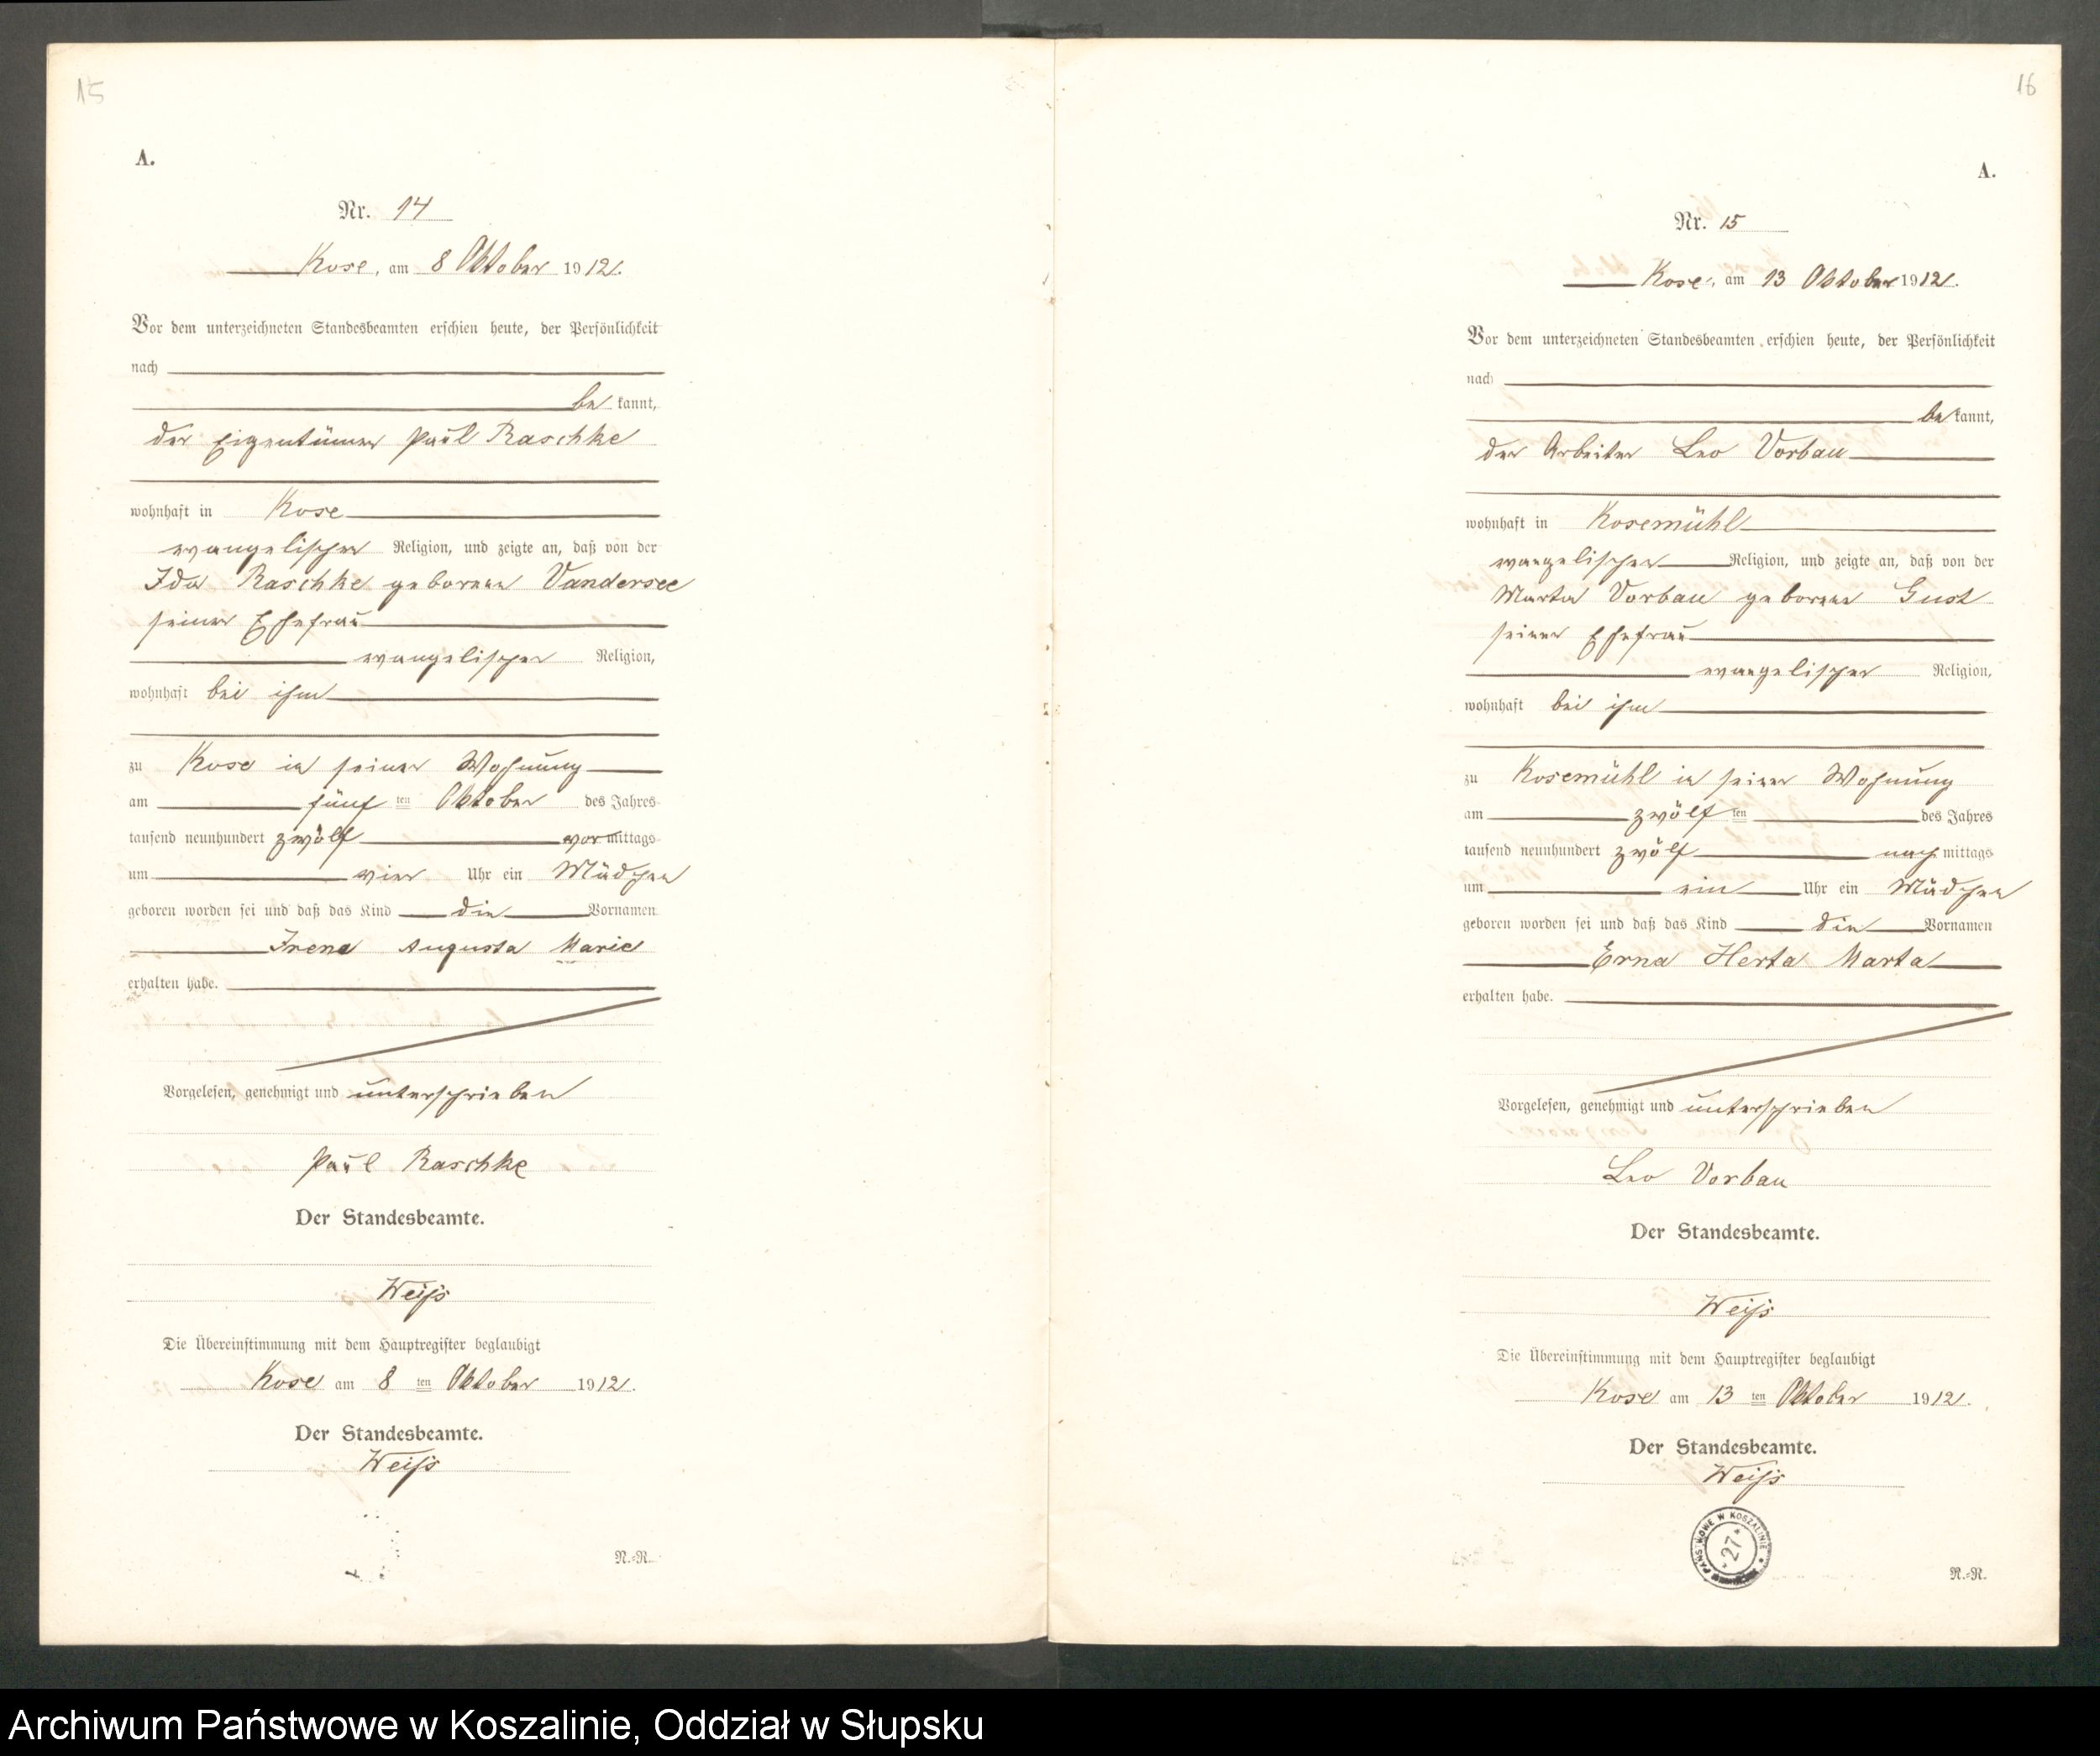 15
A.
Nr. 14
Kose, am 8 Oktober 1912.
Vor dem unterzeichneten Standesbeamten erschien heute, der Persönlichkeit
nach
be kannt,
der Eigentümer Paul Raschke
wohnhaft in Kose
evangelischer Religion, und zeigte an, daß von der
Ida Raschke geborene Vandersee
seiner Ehefrau
evangelischer Religion,
wohnhaft bei ihm
zu Kose in seiner Wohnung
am fünf ten Oktober des Jahres
tausend neunhundert zwölf vor mittags
um vier Uhr ein Mädchen
geboren worden sei und daß das Kind die Vornamen
Irene Augusta Marie
erhalten habe.
Vorgelesen, genehmigt und unterschrieben
Paul Raschke
Der Standesbeamte.
Weiß
Die Übereinstimmung mit dem Hauptregister beglaubigt
Kose am 8 ten Oktober 1912.
Der Standesbeamte.
Weiß
N.=R.
16
A.
Nr. 15
Kose, am 13 Oktober 1912.
Vor dem unterzeichneten Standesbeamten erschien heute, der Persönlichkeit
nach
be kannt,
der Arbeiter Leo Vorbau
wohnhaft in Kosemühl
evangelischer Religion, und zeigte an, daß von der
Marta Vorbau geborene Gust
seiner Ehefrau
evangelischer Religion,
wohnhaft bei ihm
zu Kosemühl in seiner Wohnung
am zwölf ten des Jahres
tausend neunhundert zwölf nach mittags
um ein Uhr ein Mädchen
geboren worden sei und daß das Kind die Vornamen
Erna Herta Marta
erhalten habe.
Vorgelesen, genehmigt und unterschrieben
Leo Vorbau
Der Standesbeamte.
Weiß
Die Übereinstimmung mit dem Hauptregister beglaubigt
Kose am 13 ten Oktober 1912.
Der Standesbeamte.
Weiß
PAŃSTWOWE W KOSZALINIE
* 27 *
N.=R.
Archiwum Państwowe w Koszalinie, Oddział w Słupsku